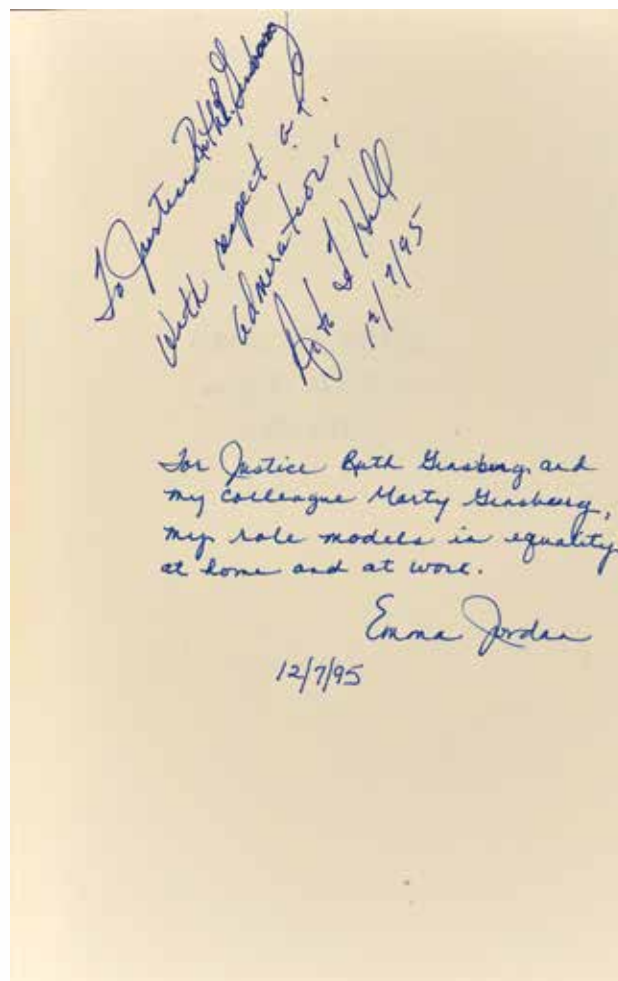 To Justice Ruth B. Ginsburg
with respect and
admiration,
Anita F Hill
12/7/95
For Justice Ruth Ginsburg, and
my colleague Marty Ginsburg,
my role models in equality
at home and at work.
Emma Jordan
12/7/95